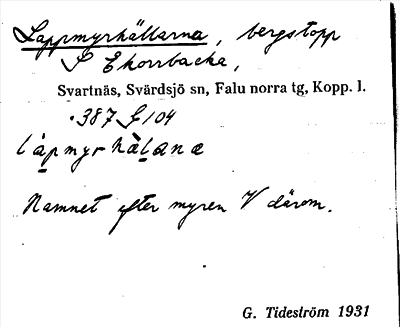 Lappmyrhällarna, bergstopp
S Ekorrbacka,
Svartnäs, Svärdsjö sn, Falu norra tg, Kopp. l.
387 104
Namnet efter myren V därom.
G. Tideström 1931